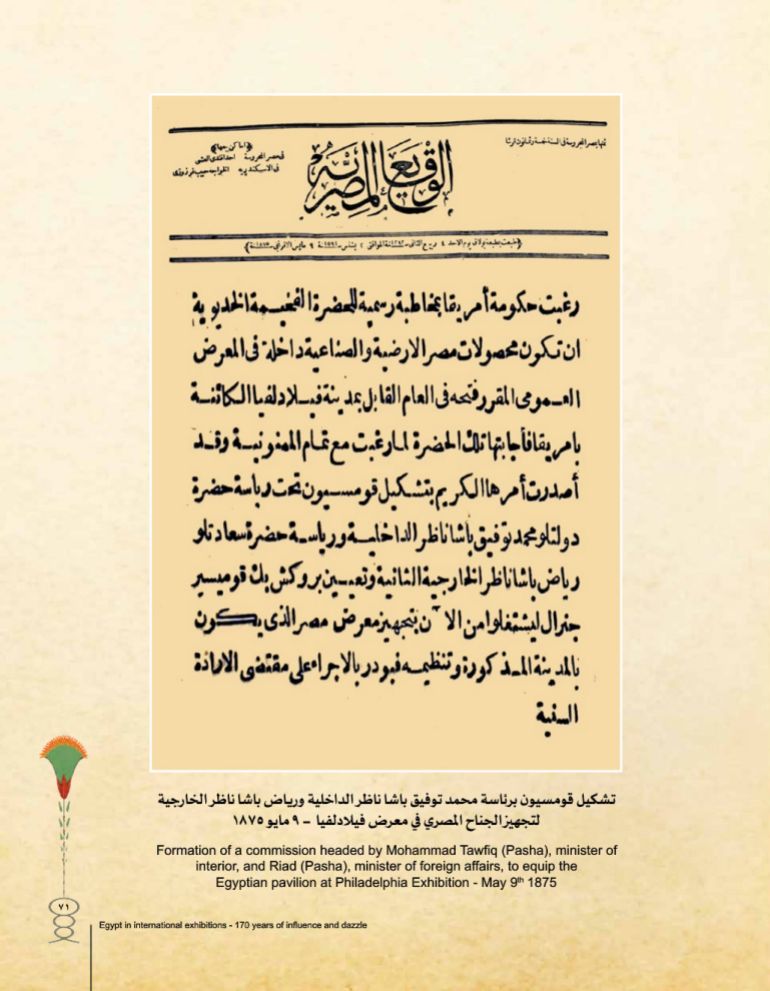 ثمنها بمصر المحروسة في السنة خمسة وقانون ارشا
﴿اماكن بيعها﴾
في مصر المحروسة
في الاسكندرية الخواجه حبيب غرزوزى
الوقايع المصرية
يوم الاحد ٤ ربيع الثاني الموافق ٢ بشنس ٩ مايس الافرنجى
رغبت حكومة أمريقا بمخاطبة رسمية للحضرة الفخيمة الخديوية
ان تكون محصولات مصر الارضية والصناعية داخلة فى المعرض
العمومى المقرر فتحه فى العام القابل بمدينة فيلادلفيا الكائنة
بامريقا فأجابتها تلك الحضرة لما رغبت مع تمام الممنونية وقد
أصدرت أمرها الكريم بتشكيل قومسيون تحت رياسة حضرة
دولتلو محمد توفيق باشا ناظر الداخلية ورياسة حضرة سعادتلو
رياض باشا ناظر الخارجية الثانية وتعيين بروكش بك قوميسير
جنرال ليشتغلوا من الآن بتجهيز معرض مصر الذى يكون
بالمدينة المذكورة وتنظيمه فبودر بالاجراء على مقتضى الارادة
السنية
تشكيل قومسيون برئاسة محمد توفيق باشا ناظر الداخلية ورياض باشا ناظر الخارجية
لتجهيز الجناح المصري في معرض فيلادلفيا - ٩ مايو ١٨٧٥
Formation of a commission headed by Mohammad Tawfiq (Pasha), minister of
interior, and Riad (Pasha), minister of foreign affairs, to equip the
Egyptian pavilion at Philadelphia Exhibition - May 9th 1875
٧١
Egypt in international exhibitions - 170 years of influence and dazzle